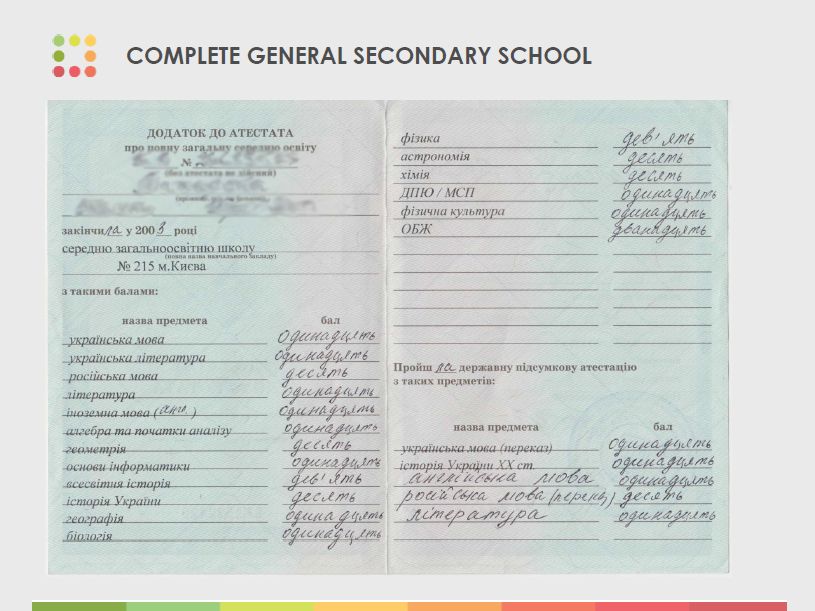 COMPLETE GENERAL SECONDARY SCHOOL
ДОДАТОК ДО АТЕСТАТА
про повну загальну середню освіту
№
(без атестата не дійсний)
закінчила у 2003 році
середню загальноосвітню школу
(повна назва навчального закладу)
№ 215 м.Києва
з такими балами:
назва предмета бал
українська мова одинадцять
українська література одинадцять
російська мова десять
література одинадцять
іноземна мова (англ.) одинадцять
алгебра та початки аналізу одинадцять
геометрія десять
основи інформатики одинадцять
всесвітня історія дев'ять
історія України десять
географія одинадцять
біологія одинадцять
фізика дев'ять
астрономія десять
хімія десять
ДПЮ / МСП одинадцять
фізична культура одинадцять
ОБЖ дванадцять
Пройшла державну підсумкову атестацію
з таких предметів:
назва предмета бал
українська мова (переказ) одинадцять
історія України XX ст. одинадцять
англійська мова одинадцять
російська мова (переказ) десять
література одинадцять